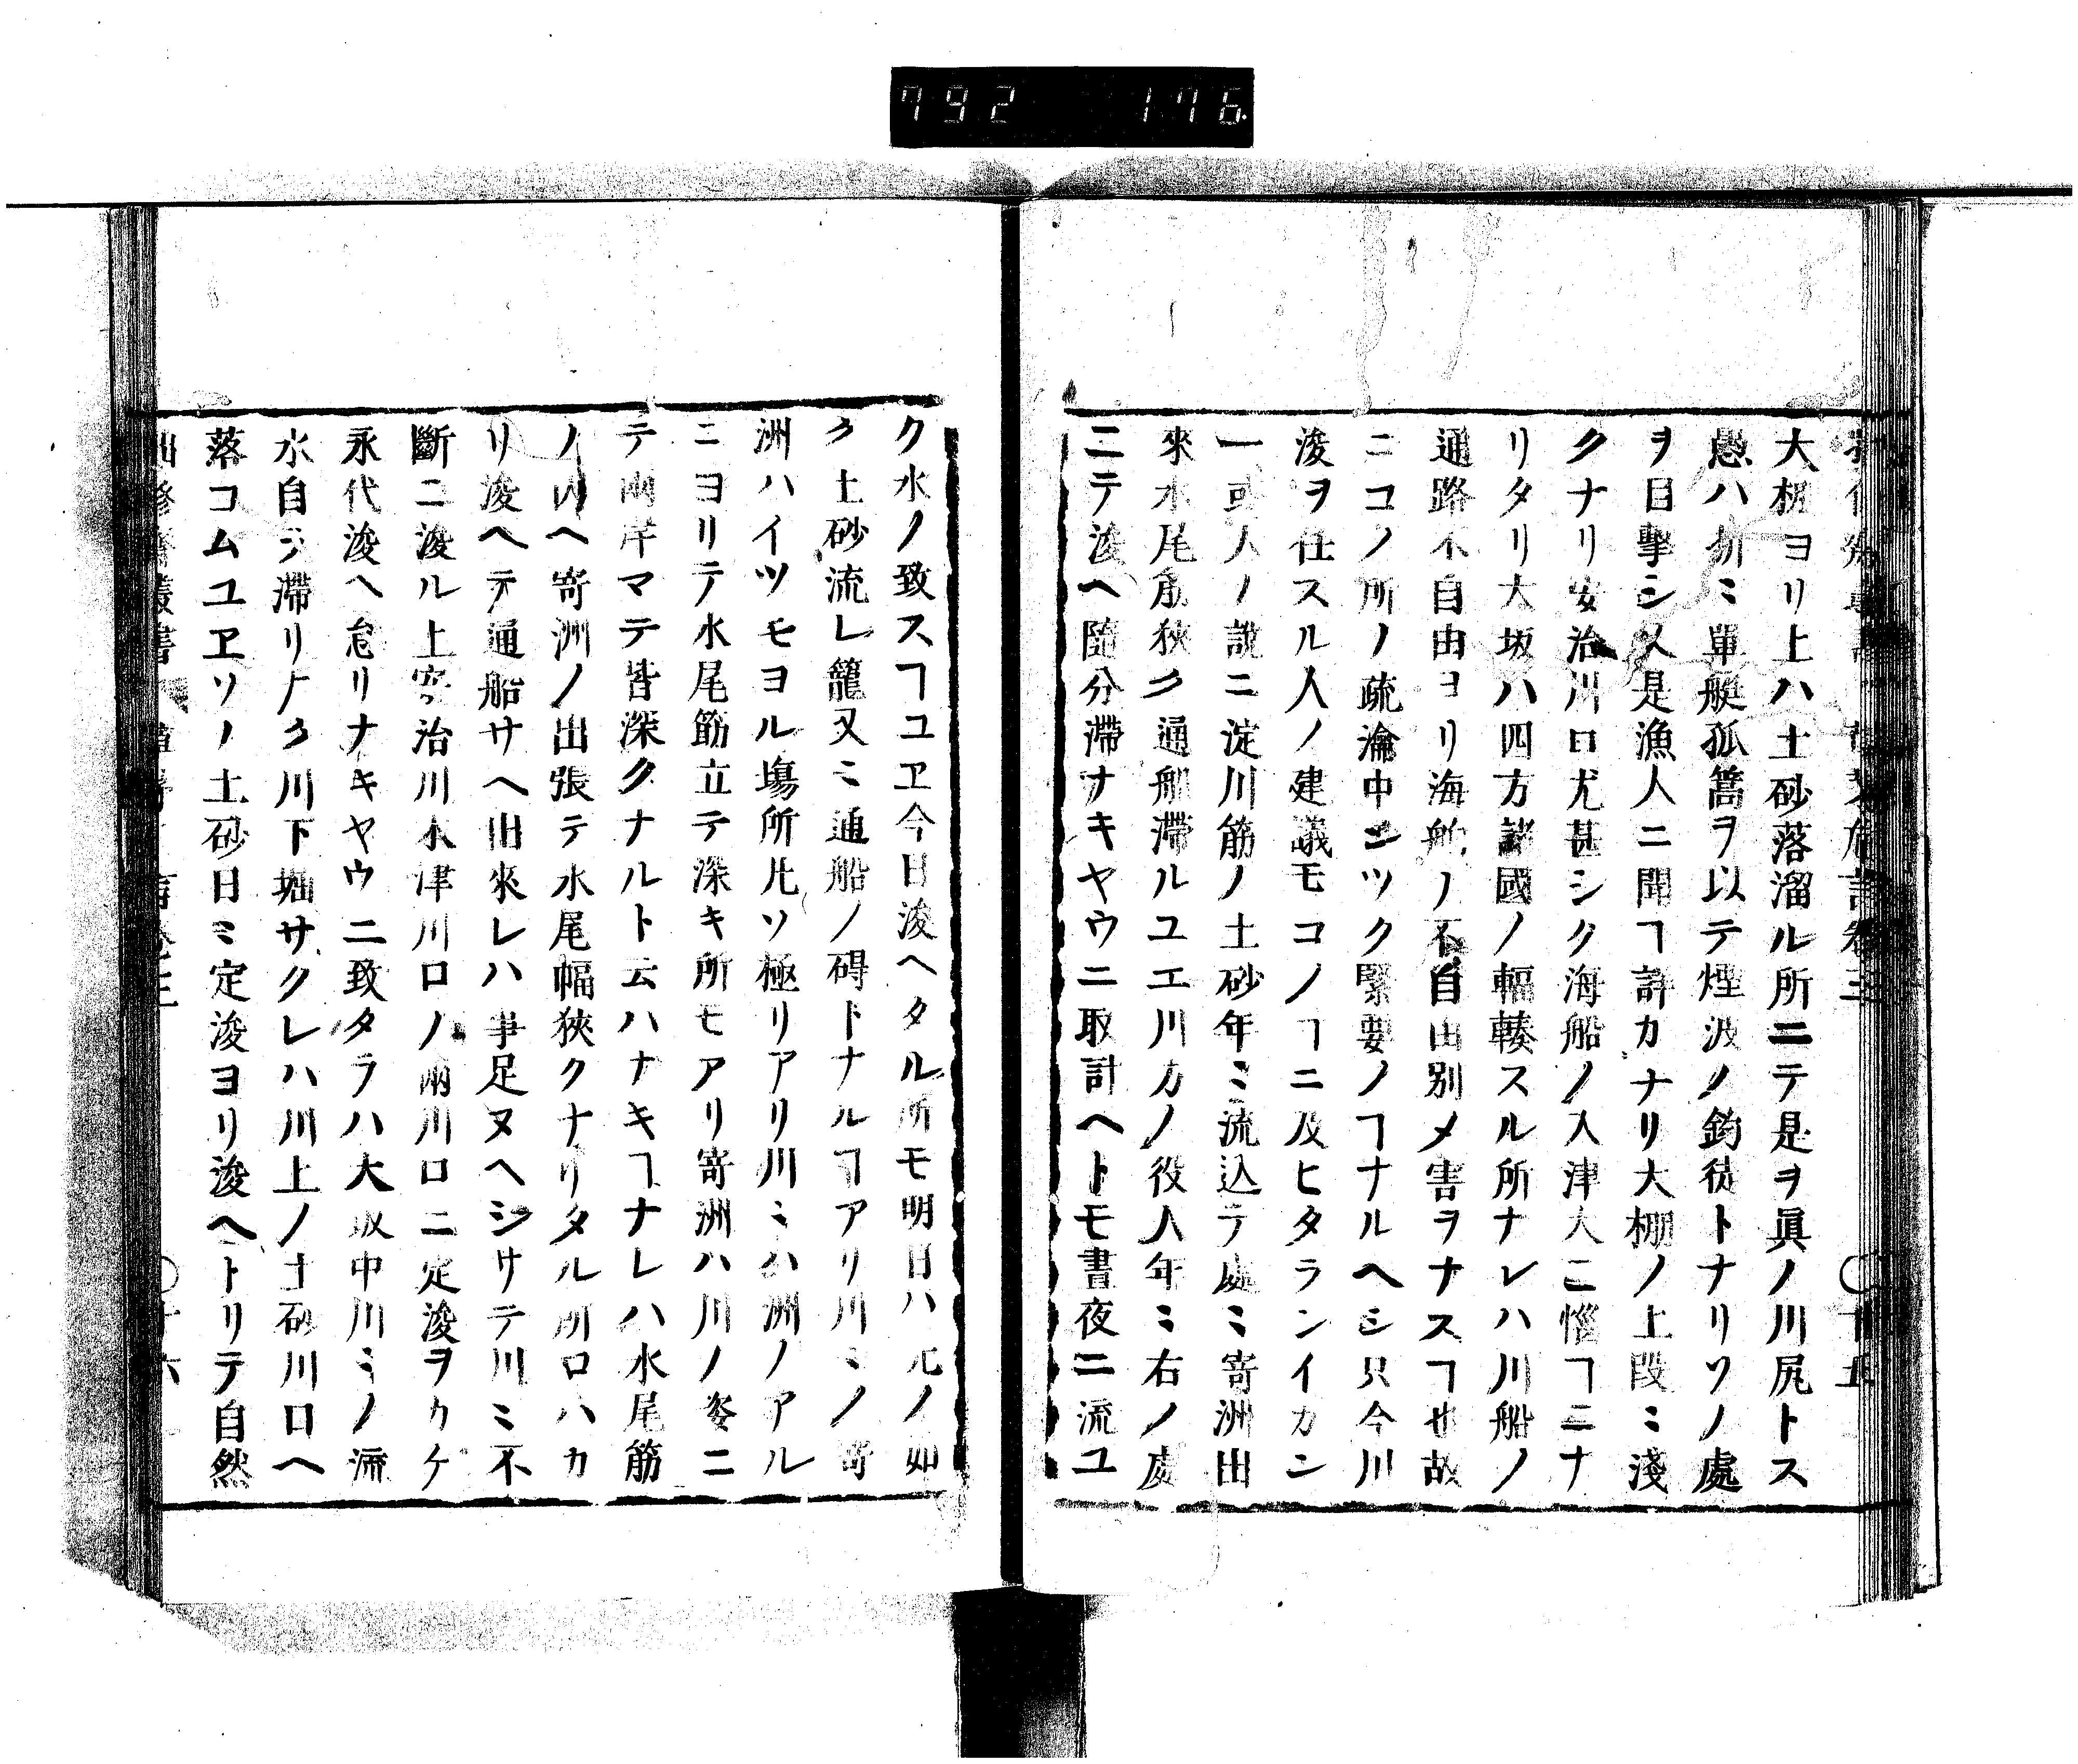 792 176
大棚ヨリ上ハ土砂落溜ル所ニテ是ヲ眞ノ川尻トス
愚ハ初ミ單艇孤篙ヲ以テ煙波ノ釣徒トナリソノ處
ヲ目擊シ又是漁人ニ聞ヿ詳カナリ大棚ノ上段ミ淺
クナリ安治川口尤甚シク海船ノ入津大ニ惱ヿニナ
リタリ大坂ハ四方諸國ノ輻輳スル所ナレハ川船ノ
通路不自由ヨリ海舶ノ不自由別メ害ヲナスヿ也故
ニコノ所ノ疏瀹中ンツク緊要ノヿナルヘシ只今川
浚ヲ任スル人ノ建議モコノヿニ及ヒタランイカシ
一或人ノ說ニ淀川筋ノ土砂年ミ流込テ處ミ寄洲出
來水尾筋狹ク通船滯ルユエ川カノ役人年ミ右ノ處
ニテ浚ヘ隨分滯ナキヤウニ取計ヘトモ晝夜ニ流ユ
ク水ノ致スヿユヱ今日浚ヘタル所モ明日ハ元ノ如
ク土砂流レ籠又ミ通船ノ碍トナルヿアリ川ミノ寄
洲ハイツモヨル塲所凡ソ極リアリ川ミハ洲ノアル
ニヨリテ水尾筋立テ深キ所モアリ寄洲ハ川ノ姿ニ
テ兩岸マテ皆深クナルト云ハナキヿナレハ水尾筋
ノ内ヘ寄洲ノ出張テ水尾幅狹クナリタル所ロハカ
リ浚ヘテ通船サヘ出來レハ事足ヌヘシサテ川ミ不
斷ニ浚ル上安治川木津川口ノ兩川口ニ定浚ヲカケ
永代浚ヘ怠リナキヤウニ致タラハ大坂中川ミノ流
水自ラ滯リナク川下堀サクレハ川上ノ土砂川口ヘ
落コムユヱソノ土砂日ミ定浚ヨリ浚ヘトリテ自然